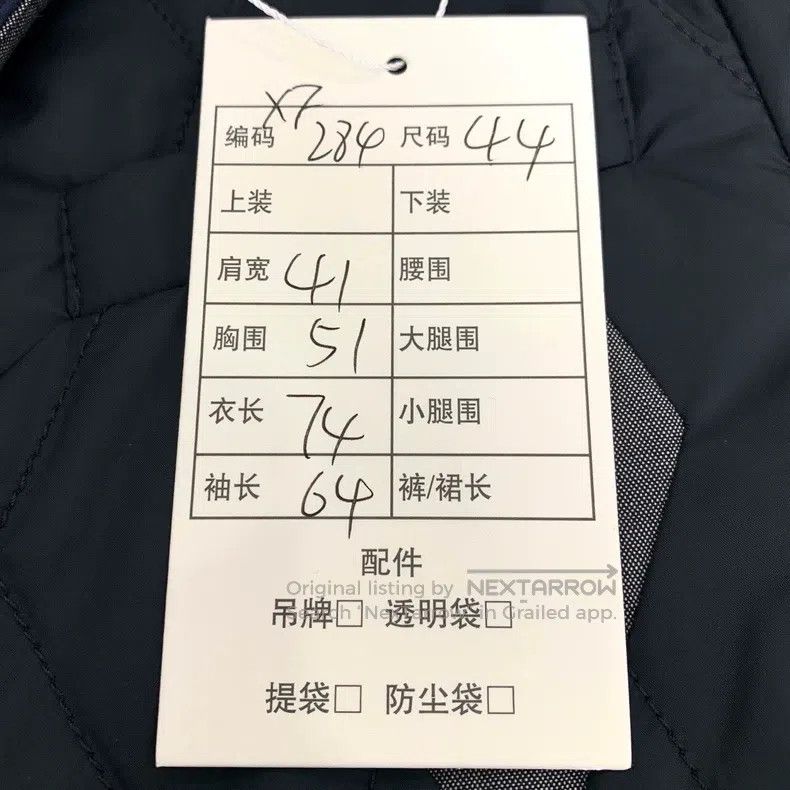 编码 X7 284 尺码 44
上装 下装
肩宽 41 腰围
胸围 51 大腿围
衣长 74 小腿围
袖长 64 裤/裙长
配件
Original listing by NEXTARROW
吊牌□ 透明袋□
in Grailed app.
提袋□ 防尘袋□